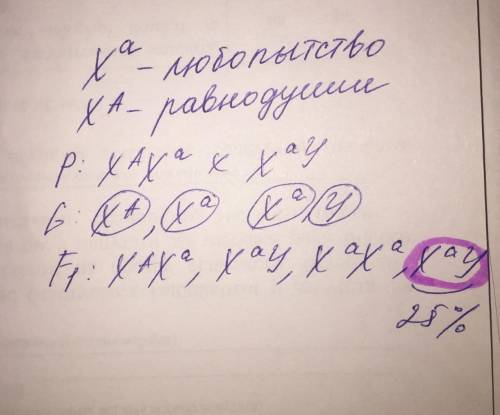 Xᵃ - любопытство
Xᴬ - равнодушии
P: XᴬXᵃ x XᵃY
G: Xᴬ, Xᵃ Xᵃ Y
F₁: XᴬXᵃ, XᵃY, XᵃXᵃ, XᵃY
25%